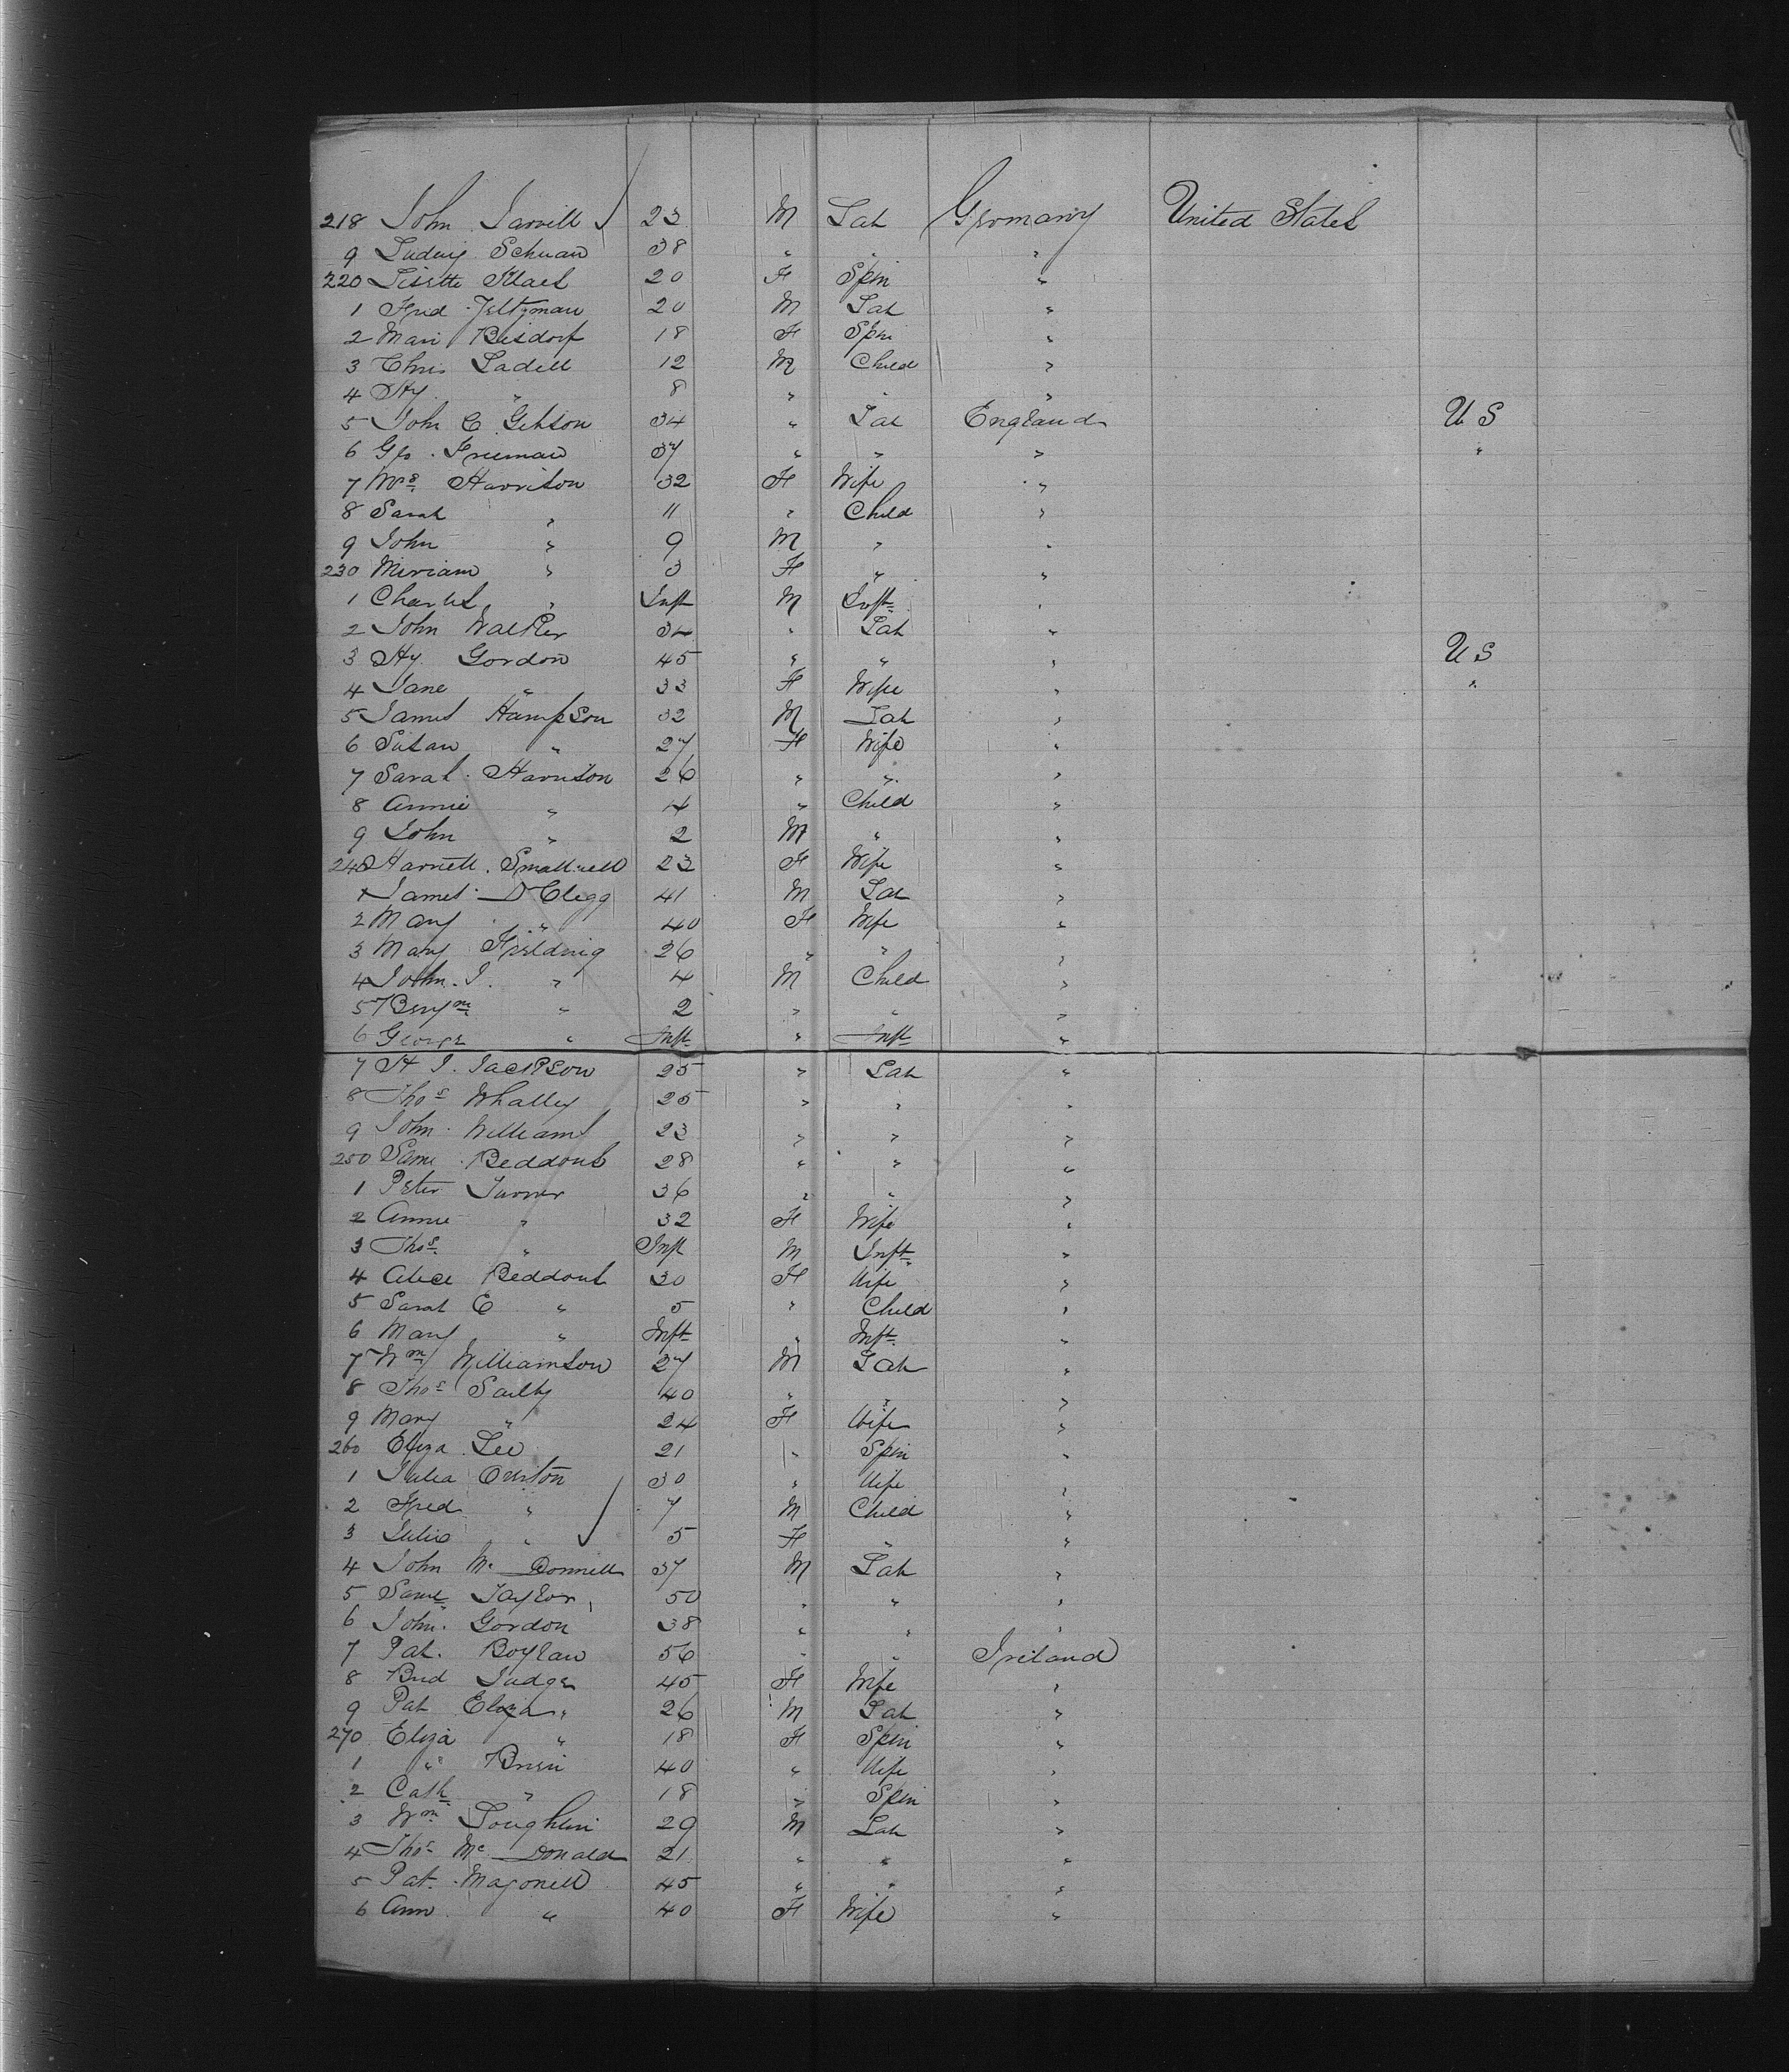 218 John Jarvill 23 M Lab Germany United States
9 Ludwig Schwan 38 " " "
220 Lisette Klaes 20 F Spin "
1 Fred Feltzman 20 M Lab "
2 Mari Bisdorf 18 F Spin "
3 Chris Ladell 12 M Child "
4 Hy " 8 " " "
5 John C Gibson 34 " Lab England U S
6 Geo. Freeman 37 " " " "
7 Mrs Harrison 32 F Wife "
8 Sarah " 11 " Child "
9 John " 9 M " "
230 Miriam " 3 F " "
1 Charles " Inft M Inft "
2 John Walker 34 " Lab "
3 Hy. Gordon 45 " " " U S
4 Jane " 33 F Wife " "
5 James Hampson 32 M Lab "
6 Susan " 27 F Wife "
7 Sarah Harrison 26 " " "
8 Annie " 4 " Child "
9 John " 2 M " "
240 Harriett Smallwell 23 F Wife "
1 James D Clegg 41 M Lab "
2 Mary " 40 F Wife "
3 Mary Fielding 26 " " "
4 John. J. " 4 M Child "
5 Benjm " 2 " " "
6 George " Inft " Inft "
7 H J. Jackson 25 " Lab "
8 Thos Whalley 25 " " "
9 John Williams 23 " " "
250 Saml Beddous 28 " " "
1 Peter Turner 36 " " "
2 Annie " 32 F Wife "
3 Thos " Inft M Inft "
4 Alice Beddous 30 F Wife "
5 Sarah E " 5 " Child "
6 Mary " Inft " Inft "
7 Wm Williamson 27 M Lab "
8 Thos 40 " " "
9 Mary " 24 F Wife "
260 Eliza Lee 21 " Spin "
1 Julia 30 " Wife "
2 Fred " 7 M Child "
3 Julia " 5 F " "
4 John Mc Donnell 37 M Lab "
5 Saml Taylor 50 " " "
6 John. Gordon 38 " " "
7 Pat. Boylan 56 " " Ireland
8 Brid Judge 45 F Wife "
9 Pat " 26 M Lab "
270 Eliza " 18 F Spin "
1 " Brien 40 " Wife "
2 Cath " 18 " Spin "
3 Wm Loughlin 29 M Lab "
4 Thos Mc Donald 21 " " "
5 Pat. 45 " " "
6 Ann " 40 F Wife "